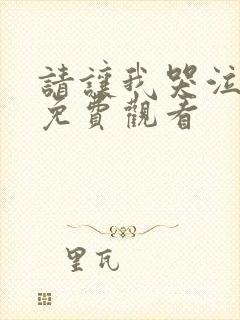 請讓我哭泣
免費觀看
里瓦